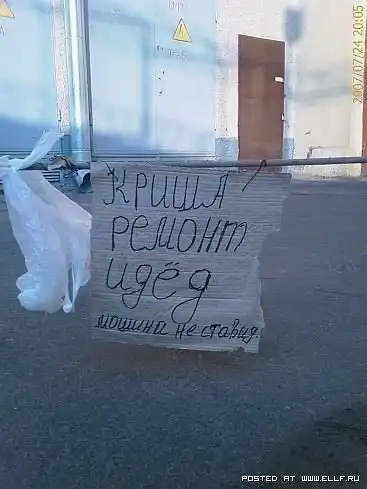 2007/07/24 20:05
КРИША
РЕМОНТ
идёд
мошина не ставид.
POSTED AT WWW.ELLF.RU